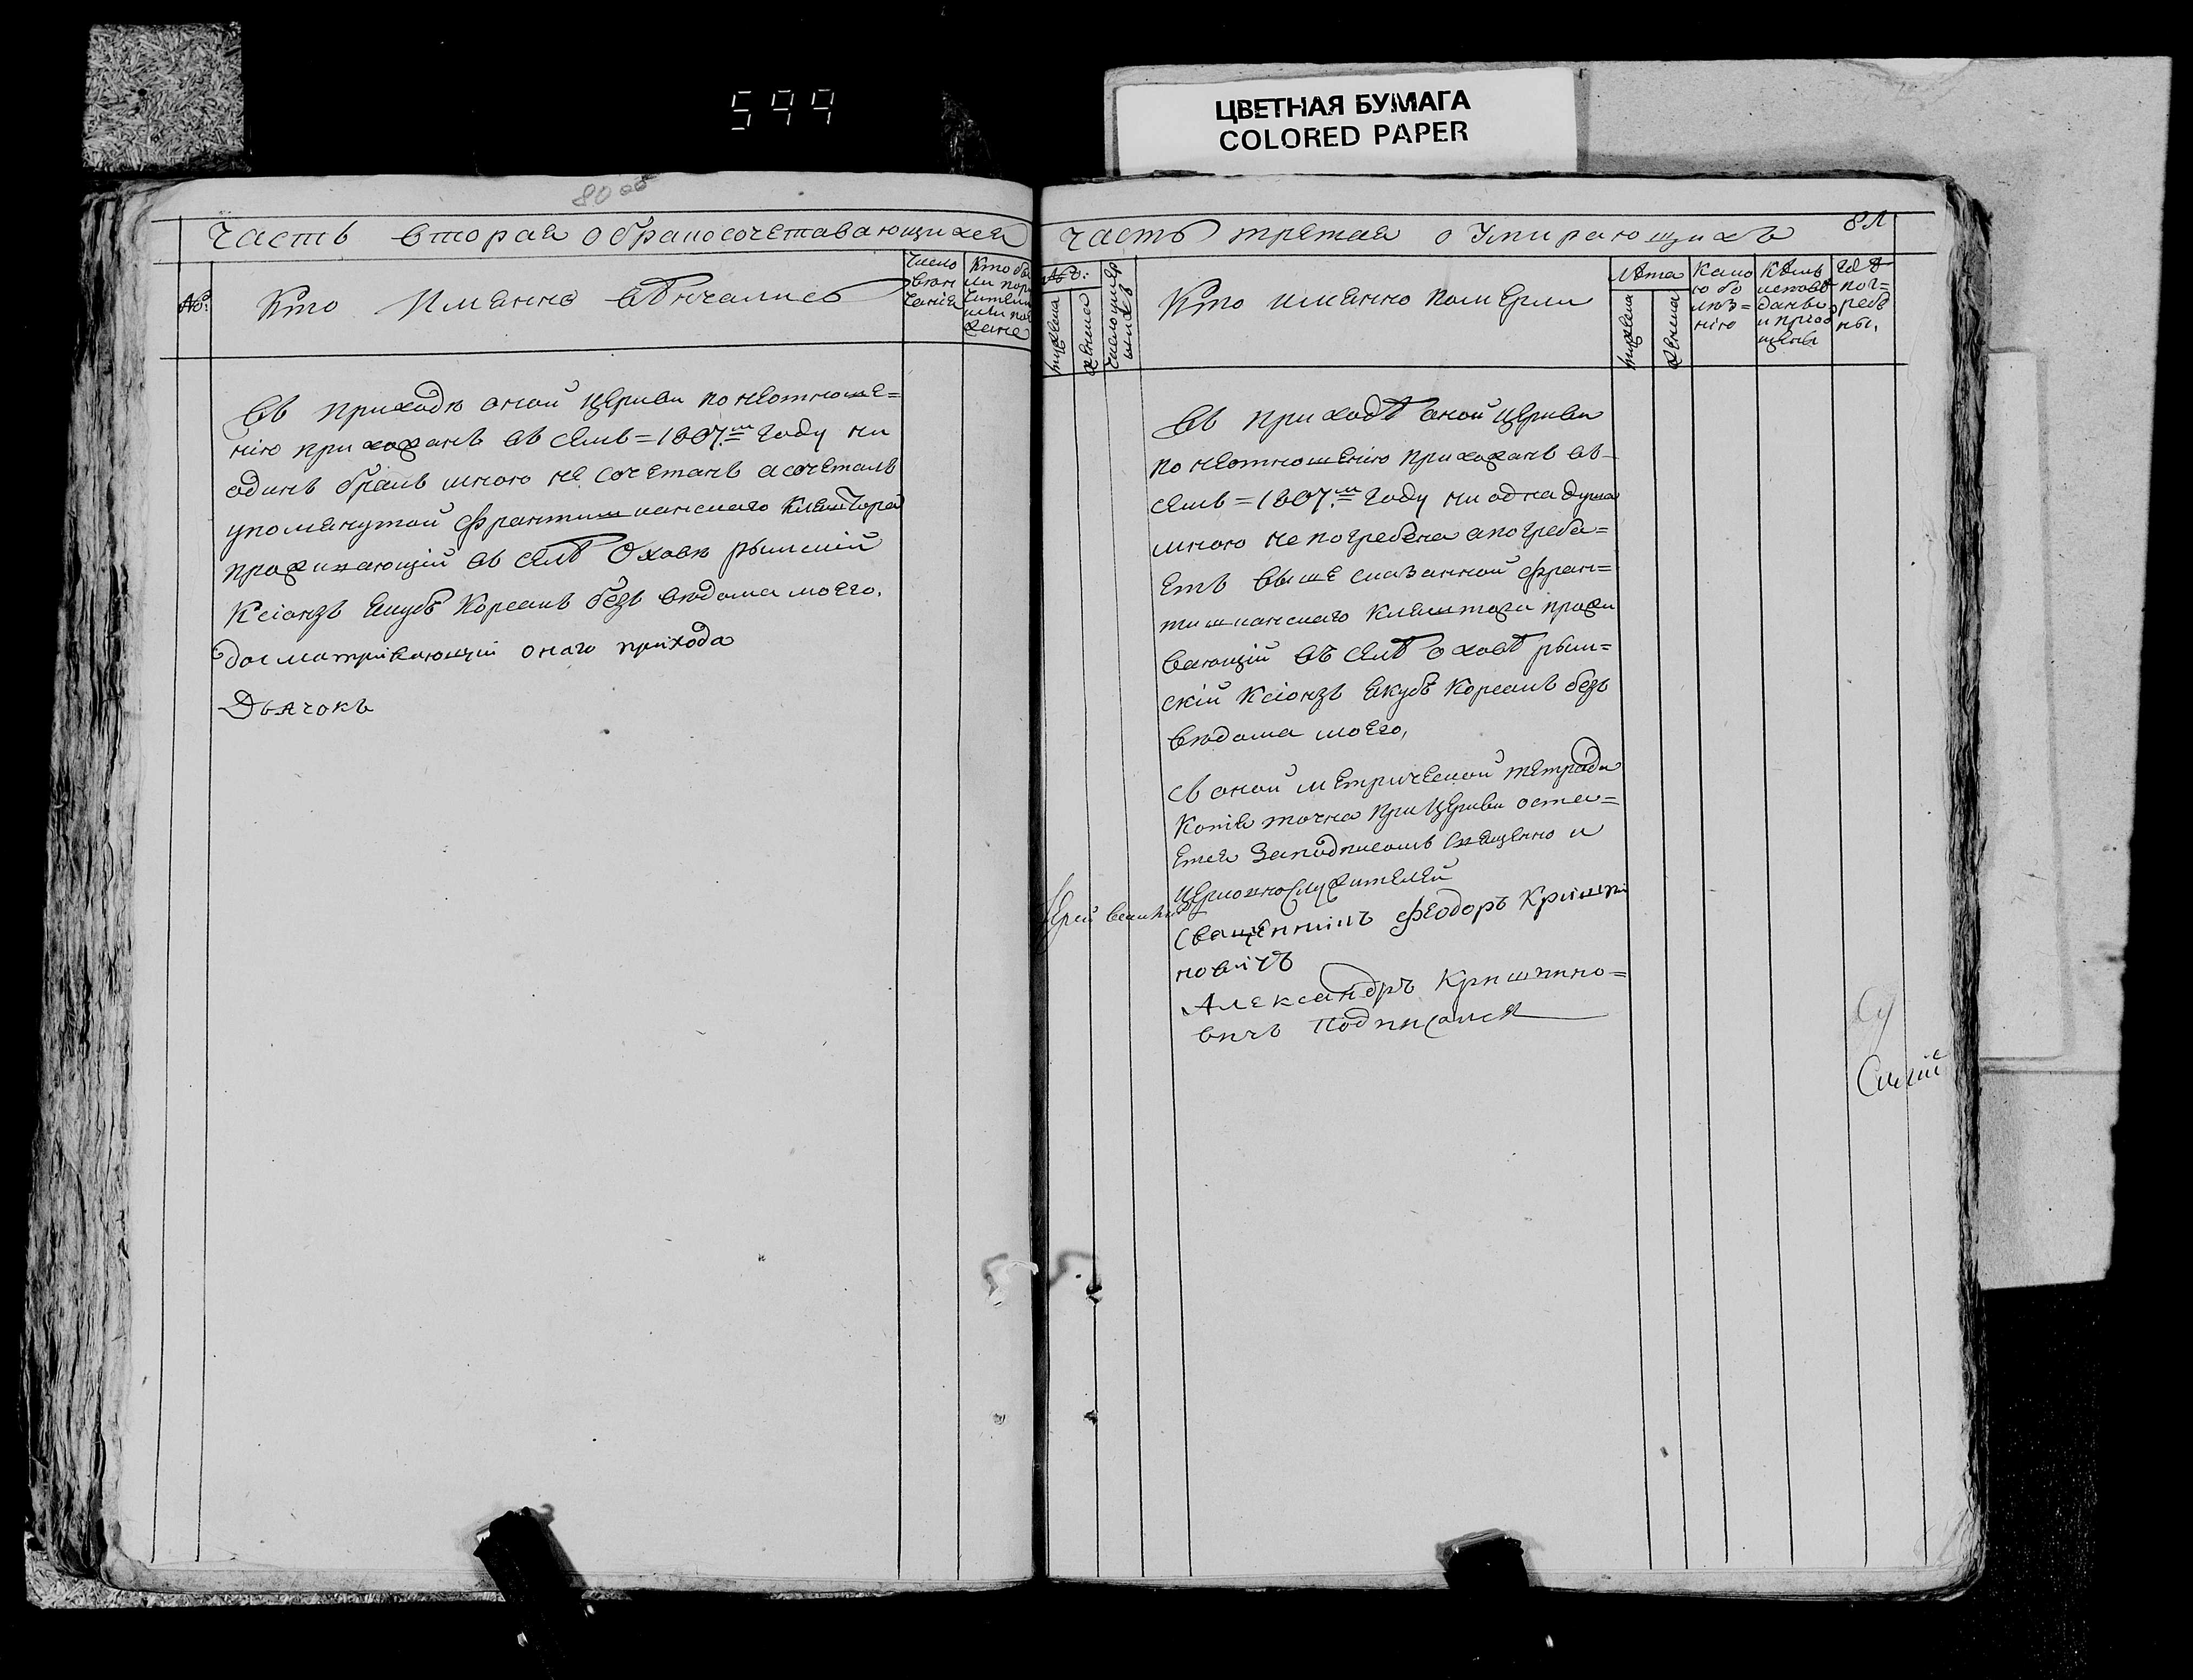 599
ЦВЕТНАЯ БУМАГА
COLORED PAPER
80 об
Часть вторая о бракосочетавающихся
№:
Кто Имянно вѣнчались
Число
вѣн
чанія
Кто бы
ли пору
чители
или поѣ
зжане
Въ приходѣ оной церкви по неотноше=
нію прихожанъ въ семъ =1807.м году ни
одинъ бракъ мною не сочетанъ а сочеталъ
упомянутой франтишканскаго кляштора
проживающій въ селѣ Оховѣ рымскій
Ксіонзъ Якубъ Корсакъ безъ вѣдома моего.
досматривающій онаго прихода
Дьячокъ
81
Часть третая о Умирающихъ
№:
мужеска
женска
Число умер
шихъ
Кто имянно померли
Лѣта
мужеска
женска
Како
ю бо
лѣз=
нію
Кѣмъ
исповѣ
данъ
и прио
щенъ
Гдѣ
пог=
ребѣ
ны.
Въ приходѣ оной церкви
по неотношенію прихожанъ въ
семъ =1807.м году ни одна душа
мною не погребена а погреба=
етъ выше сказанной фран=
тишканскаго кляштора прожи
вающій въ селѣ оховѣ рым=
скій Ксіонзъ Якубъ Корсакъ безъ
вѣдома моего,
Съ оной метрической тетради
Копія точна при Церкви оста=
ется За подписомъ Священно и
церковнослужителей
Священникъ Феодоръ Кришпи
новичъ
Александръ Кришпино=
вичъ Подписался